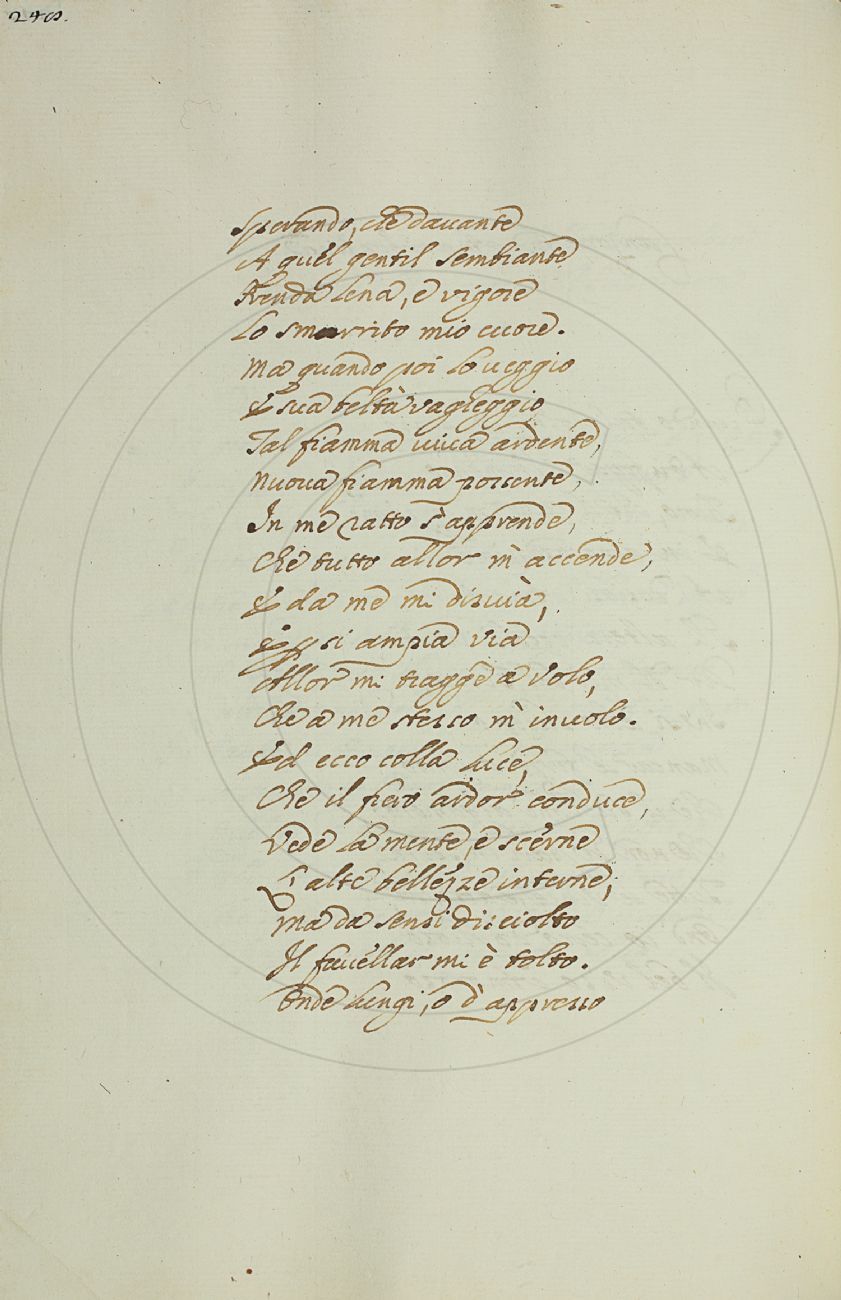 248.
Sperando, che davante
A quel gentil sembiante
Renda lena, e vigore
Lo smarrito mio cuore.
Ma quando poi lo veggio
E sua beltà vagheggio
Tal fiamma viva ardente,
Nuova fiamma possente,
In me ratto s'apprende,
Che tutto allor m'accende,
E da me mi disvia,
E si ampia via
Allor mi tragge a volo,
Che a me stesso m'involo.
Ed ecco colla luce,
Che il fiero ardor conduce,
Vede la mente, e scerne
L'alte bellezze interne;
Ma da sensi disciolto
Il favellar mi è tolto.
Onde lungi, o d'appresso